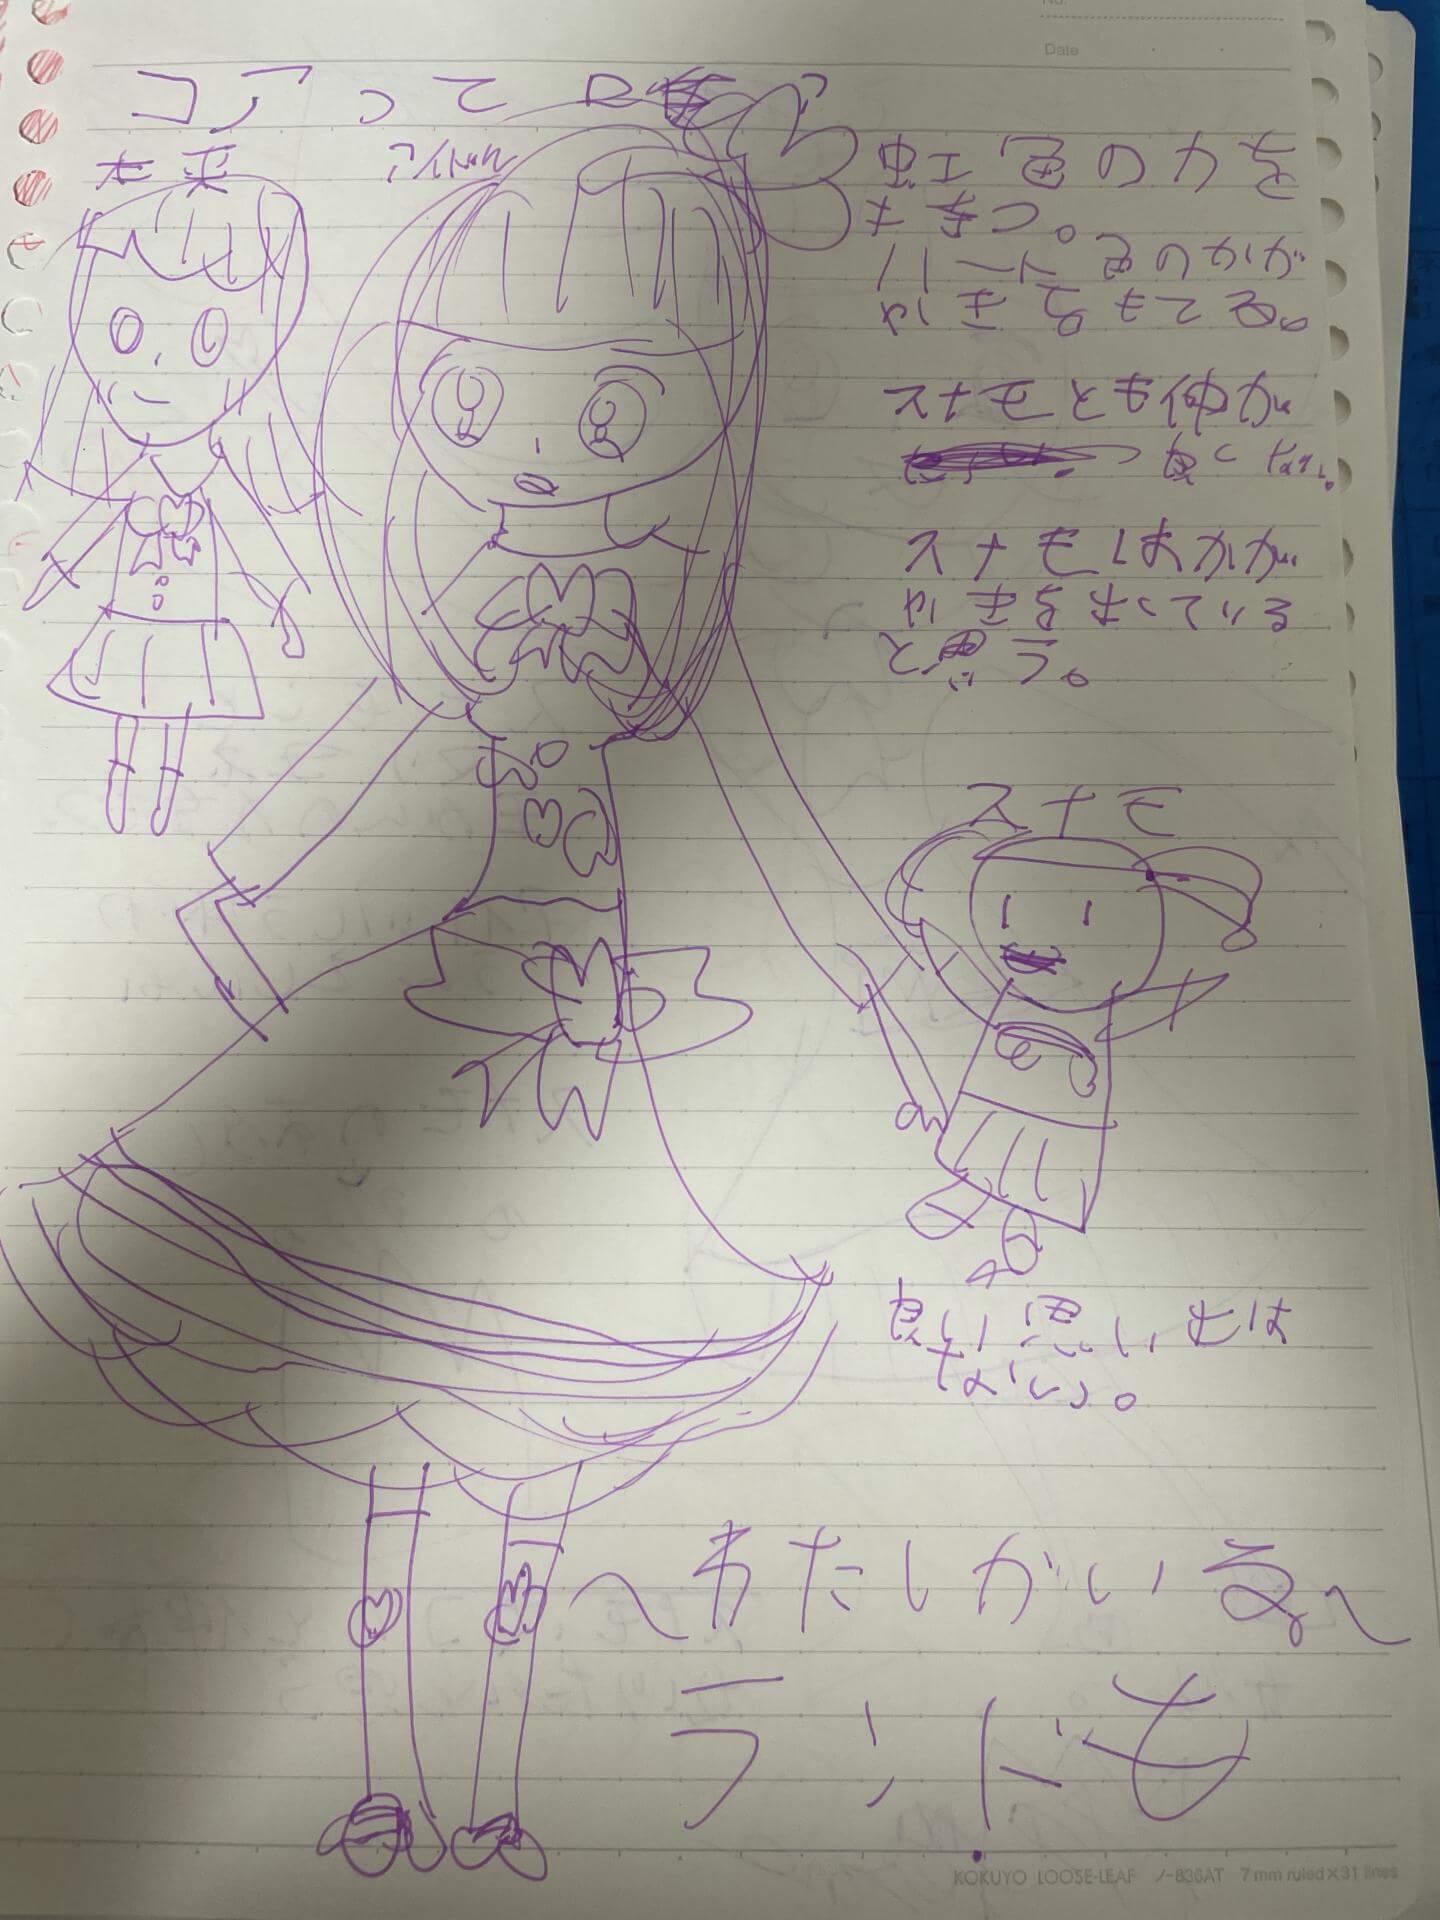 No.
Date
コアって
未来
アイドル
虹色の力を
もまつ。
ハート色のかが
やきをもてる。
スナモとも仲が
良くない。
スナモはかが
やきをまっている
と思う。
スナモ
良い思い出は
ない。
〜わたしがいる。〜
ランドも
KOKUYO LOOSE-LEAF ノ-836AT 7mm ruled×31 lines